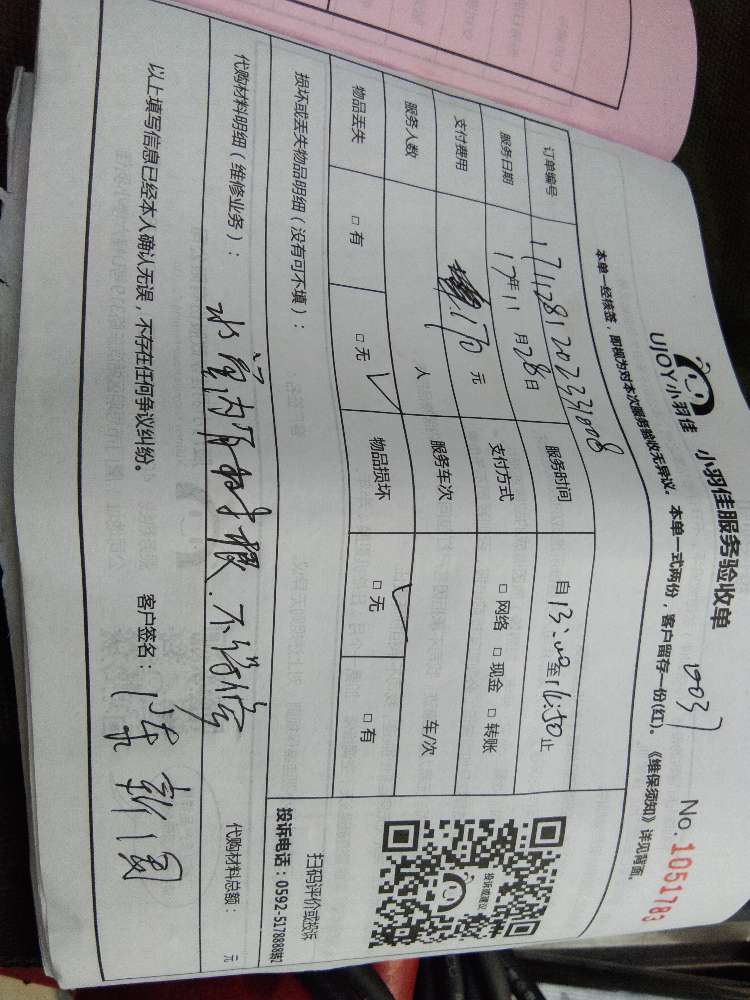 UJOY小羽佳 小羽佳服务验收单 No.1051783
1003
本单一经核签，即视为对本次服务验收无异议。本单一式两份，客户留存一份(红)。《维保须知》详见背面。
订单编号 1711281202331008 服务时间 自13:00至16:50止
服务日期 17年11月28日 支付方式 □网络 □现金 □转账
支付费用 170元 服务车次 车/次
服务人数 人
物品丢失 □有 □无 ✓ 物品损坏 □无 ✓ □有
损坏或丢失物品明细（没有可不填）：
代购材料明细（维修业务）： 不 代购材料总额： 元
以上填写信息已经本人确认无误，不存在任何争议纠纷。 客户签名：
投诉或建议
扫码评价或投诉
投诉电话：0592-5178888转2